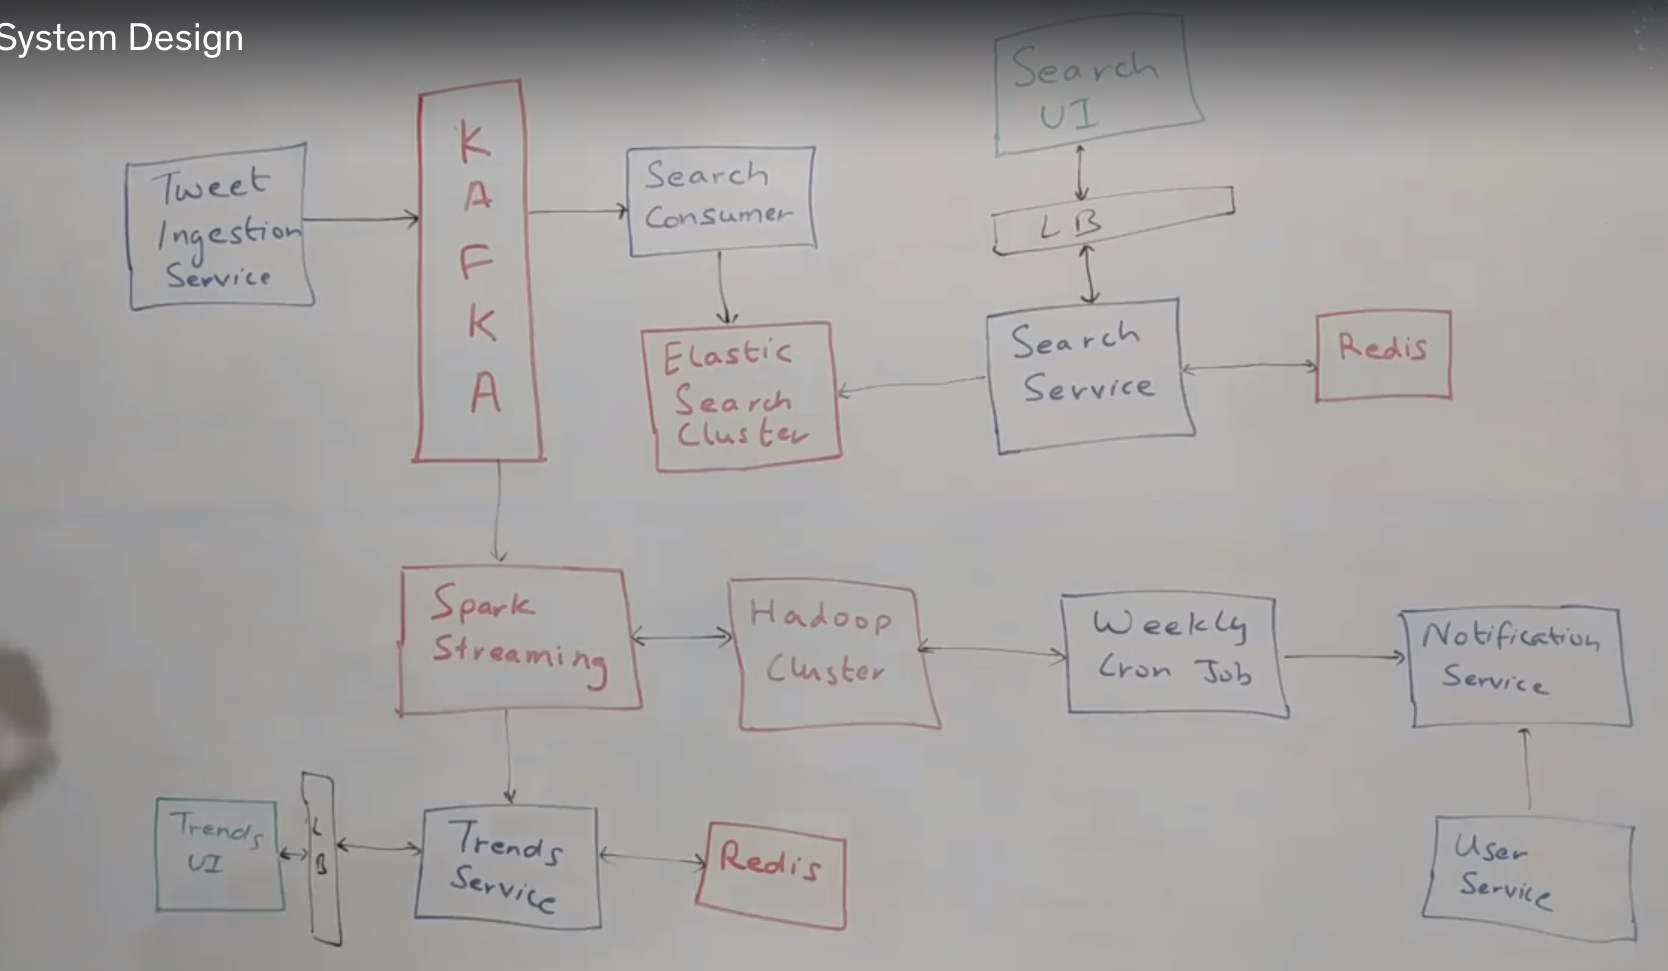 System Design
Search
UI
KAFKA
Tweet
Ingestion
Service
Search
Consumer
LB
Elastic
Search
Cluster
Search
Service
Redis
Spark
Streaming
Hadoop
Cluster
Weekly
Cron Job
Notification
Service
Trends
UI
LB
Trends
Service
Redis
User
Service